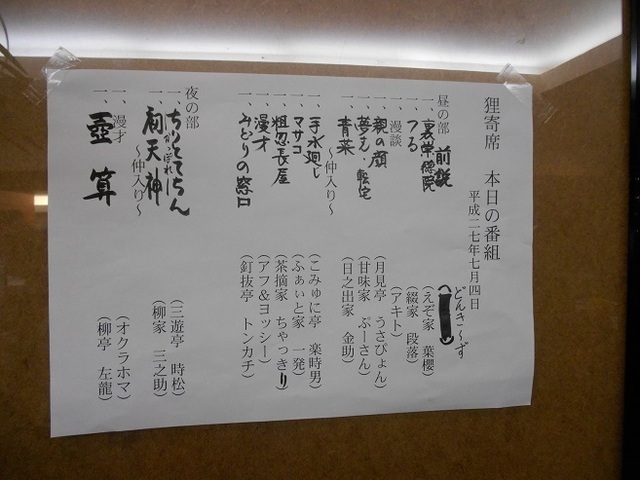 狸寄席　本日の番組
平成二七年七月四日
昼の部　前説　（　）どんきーず
一、裏常倶院　（えぞ家　葉櫻）
一、つる　（綴家　段落）
漫談　（アキト）
一、親の顔　（月見亭　うさぴょん）
一、夢之・転宅　（甘味家　ぶーさん）
一、青菜　（日之出家　金助）
～仲入り～
一、手水廻し　（こみゅに亭　楽時男）
一、マサコ　（ふぁいと家　一発）
一、粗忽長屋　（茶摘家　ちゃっきり）
一、漫才　（アフ&ヨッシー）
一、みどりの窓口　（釘抜亭　トンカチ）
夜の部
一、ちりとてちん　かっぽれ　（三遊亭　時松）
一、初天神　（柳家　三之助）
～仲入り～
一、漫才　（オクラホマ）
一、壺算　（柳亭　左龍）